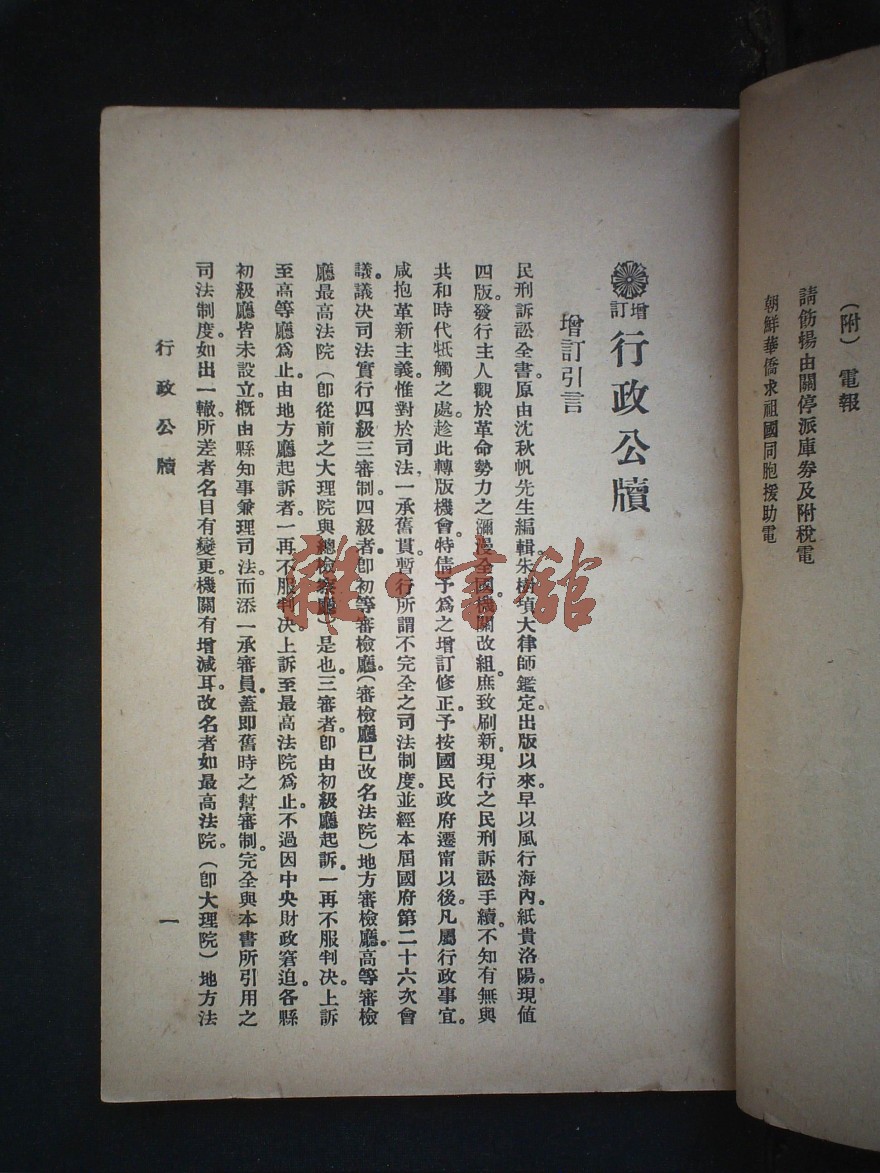 （附）電報
請飭揚由關停派庫劵及附稅電
朝鮮華僑求祖國同胞援助電
增訂 行政公牘
增訂引言
民刑訴訟全書。原由沈秋帆先生編輯。朱樹禎大律師鑑定。出版以來。早以風行海內。紙貴洛陽。現值
四版。發行主人觀於革命勢力之瀰漫全國。機關改組。庶致刷新。現行之民刑訴訟手續。不知有無與
共和時代牴觸之處。趁此轉版機會。特倩予爲之增訂修正。予按國民政府遷甯以後。凡屬行政事宜。
咸抱革新主義。惟對於司法一承舊貫。暫行所謂不完全之司法制度。並經本屆國府第二十六次會
議。議决司法實行四級三審制。四級者。卽初等審檢廳（審檢廳已改名法院）地方審檢廳。高等審檢
廳最高法院（卽從前之大理院與總檢察廳）是也。三審者。卽由初級廳起訴。一再不服判决。上訴
至高等廳爲止。由地方廳起訴者。一再不服判决。上訴至最高法院爲止。不過因中央財政窘迫。各縣
初級廳皆未設立。槪由縣知事兼理司法。而添一承審員。蓋即舊時之幫審制。完全與本書所引用之
司法制度。如出一轍。所差者名目有變更。機關有增減耳。改名者如最高法院。（卽大理院）地方法
行政公牘
一
雜·書館